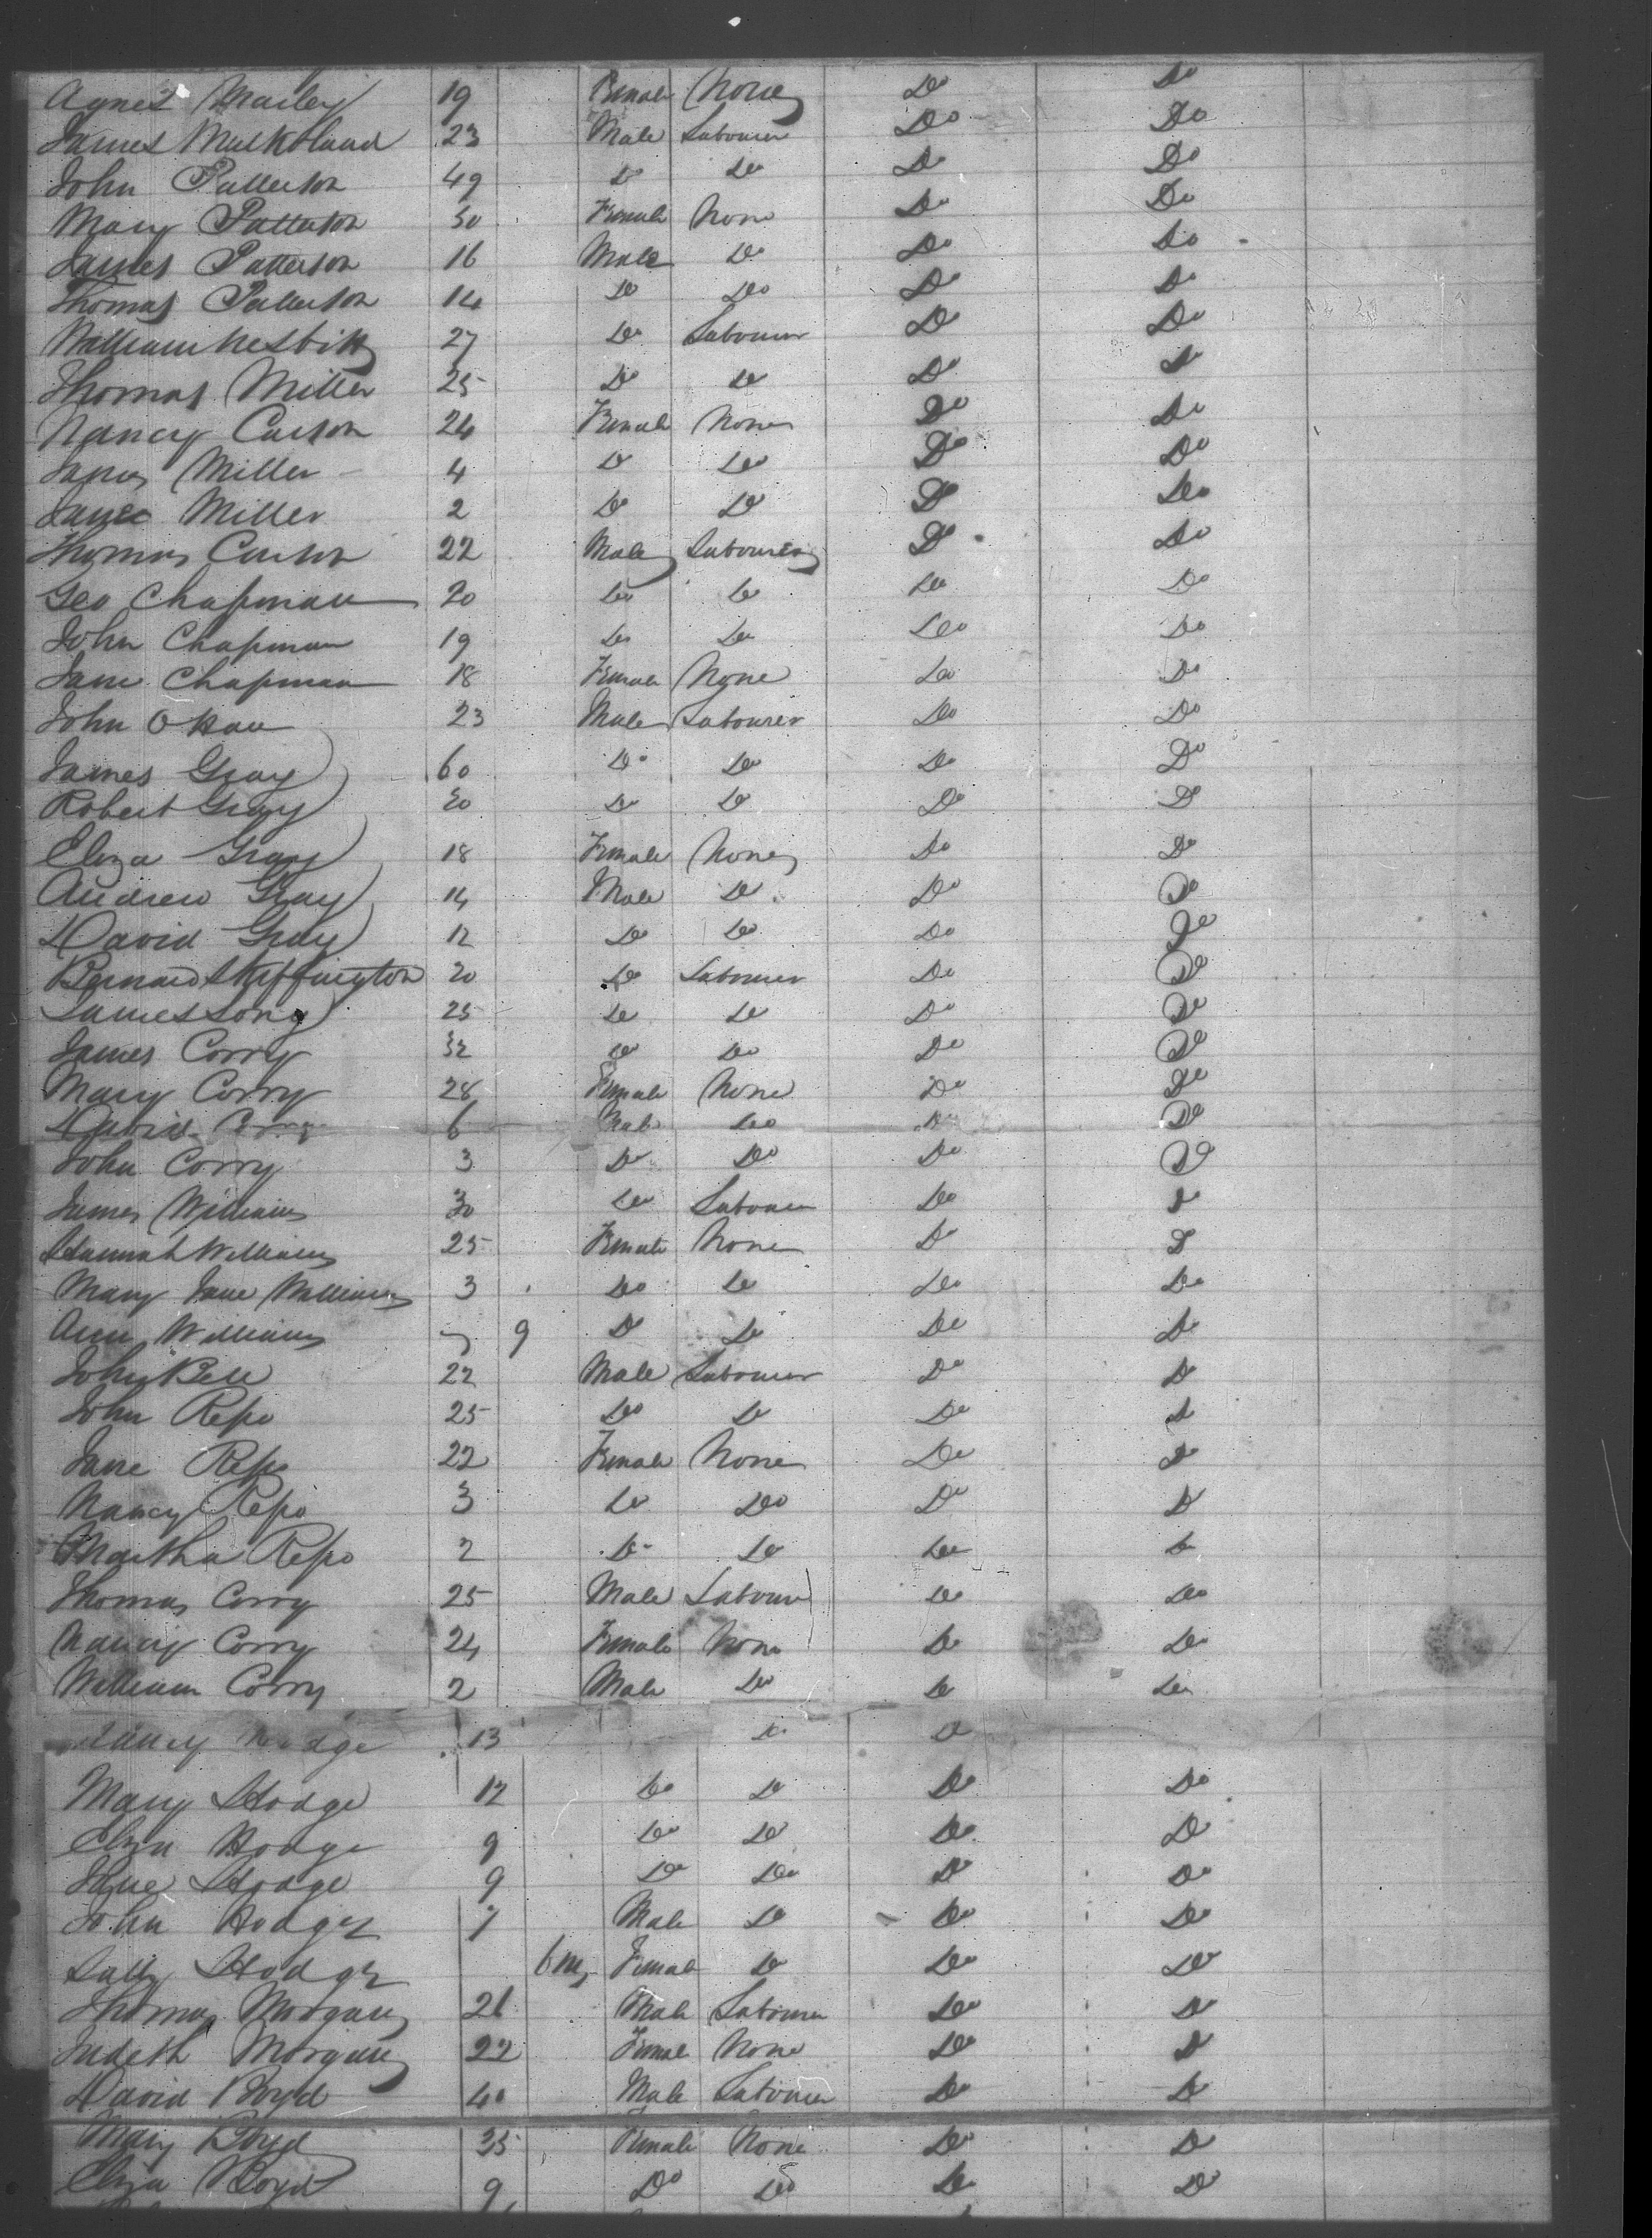 Agnes Mailey 19 Female None Do Do
James Mulholland 23 Male Labourer Do Do
John Patterson 49 Do Do Do Do
Mary Patterson 50 Female None Do Do
James Patterson 16 Male Do Do Do
Thomas Patterson 14 Do Do Do Do
William Nesbitt 27 Do Labourer Do Do
Thomas Miller 25 Do Do Do Do
Nancy Carson 24 Female None Do Do
Miller 4 Do Do Do Do
Jane Miller 2 Do Do Do Do
Thomas Carson 22 Male Labourer Do Do
Geo Chapman 20 Do Do Do Do
John Chapman 19 Do Do Do Do
Jane Chapman 18 Female None Do Do
John 23 Male Labourer Do Do
James Gray 60 Do Do Do Do
Robert Gray 20 Do Do Do Do
Eliza Gray 18 Female None Do Do
Andrew Gray 14 Male Do Do Do
David Gray 12 Do Do Do Do
Bernard Skiffington 20 Do Labourer Do Do
James Long 25 Do Do Do Do
James Corry 32 Do Do Do Do
Mary Corry 28 Female None Do Do
David Corry 6 Male Do Do Do
John Corry 3 Do Do Do Do
James Williams 30 Do Labourer Do Do
Hannah Williams 25 Female None Do Do
Mary Jane Williams 3 Do Do Do Do
Ann Williams 9 Do Do Do Do
John Bell 22 Male Labourer Do Do
John Repo 25 Do Do Do Do
Jane Repo 22 Female None Do Do
Nancy Repo 3 Do Do Do Do
Martha Repo 2 Do Do Do Do
Thomas Corry 25 Male Labour Do Do
Nancy Corry 24 Female None Do Do
William Corry 2 Male Do Do Do
Nancy Hodge 13 Do Do
Mary Hodge 12 Do Do Do Do
Eliza Hodge 9 Do Do Do Do
Jane Hodge 9 Do Do Do Do
John Hodge 7 Male Do Do Do
Sally Hodge 6 ms Female Do Do Do
Thomas Morgan 26 Male Labourer Do Do
Judeth Morgan 22 Female None Do Do
David Boyd 40 Male Labourer Do Do
Mary Boyd 35 Female None Do Do
Eliza Boyd 9 Do Do Do Do